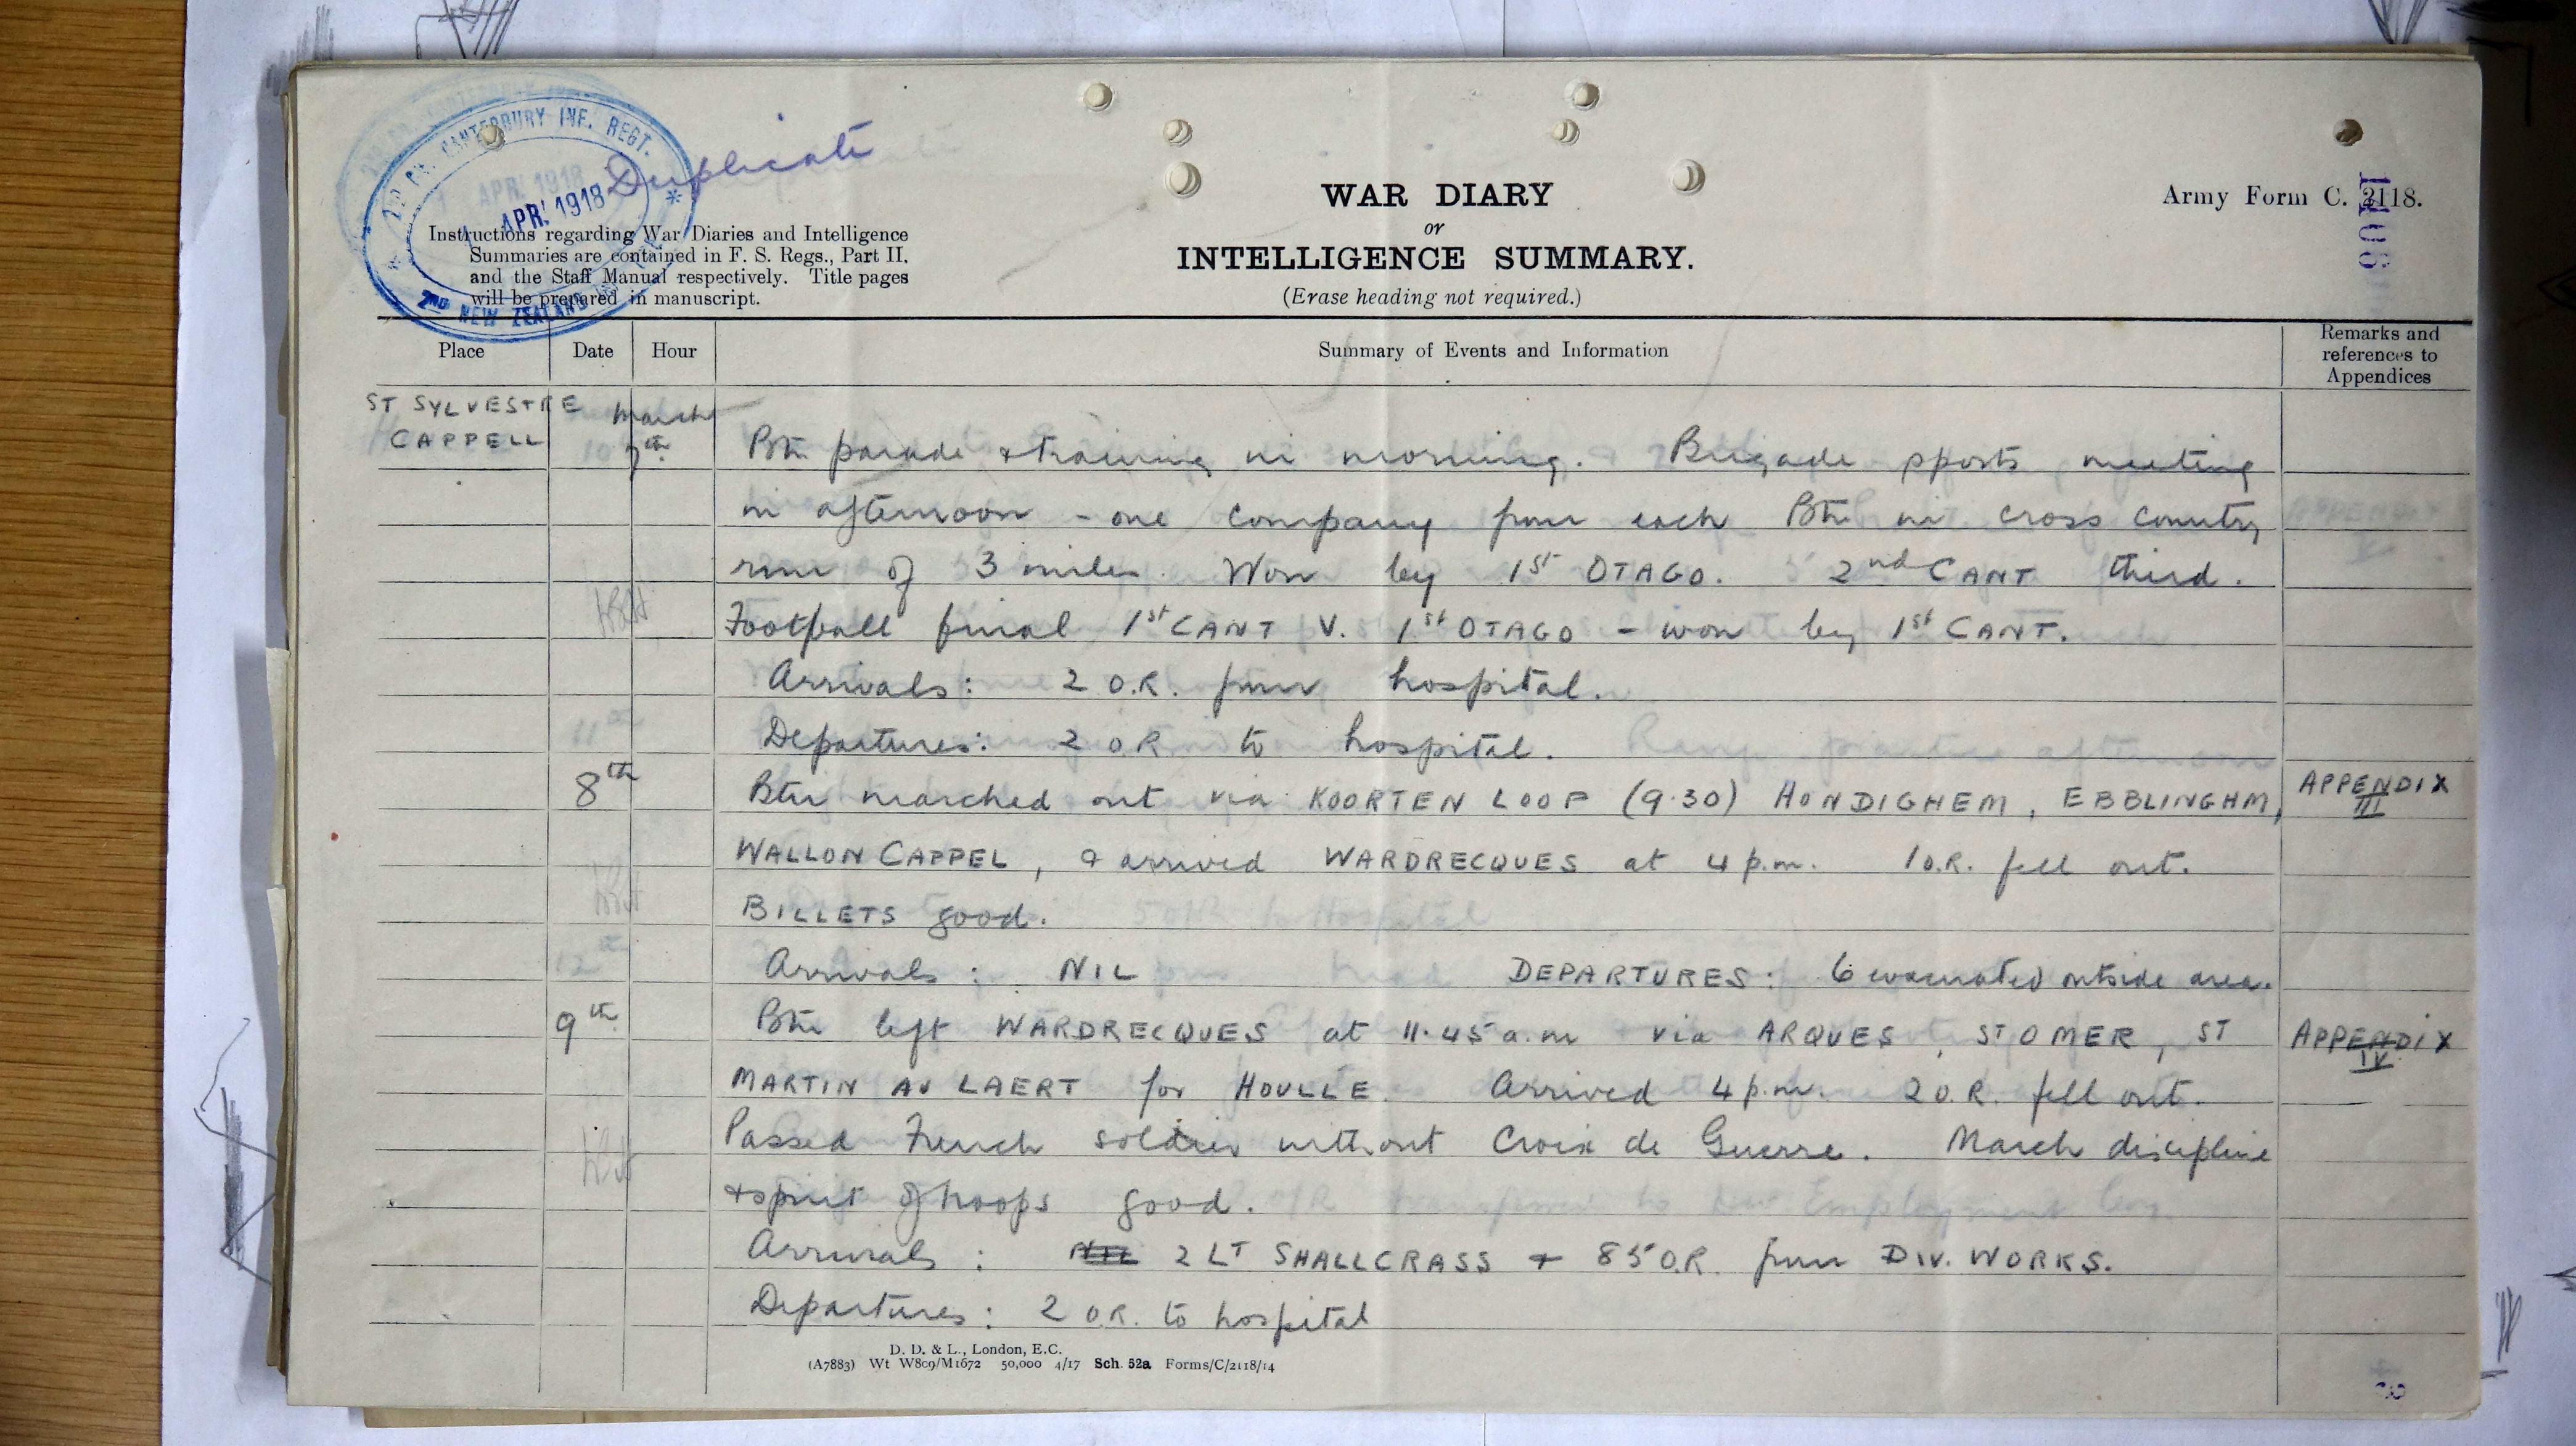 CANTERBURY INF. REGT.
APR. 1918
2ND NEW ZEALAND
Duplicate
Instructions regarding War Diaries and Intelligence
Summaries are contained in F. S. Regs., Part II.
and the Staff Manual respectively. Title pages
will be prepared in manuscript.
WAR DIARY
or
INTELLIGENCE SUMMARY.
(Erase heading not required.)
Army Form C. 2118.
Place Date Hour Summary of Events and Information Remarks and references to Appendices
ST SYLVESTRE March
CAPPELL 7th Btn parade & training in morning. Brigade sports meeting
in afternoon - one company from each Btn in cross country
run of 3 miles. Won by 1st OTAGO. 2nd CANT third.
Football final 1st CANT V. 1st OTAGO - won by 1st CANT.
Arrivals: 2 O.R. from hospital.
Departures: 2 O.R. to hospital.
8th Btn marched out via KOORTEN LOOP (9.30) HONDIGHEM, EBBLINGHM, APPENDIX III
WALLON CAPPEL, & arrived WARDRECQUES at 4 p.m. 1 O.R. fell out.
BILLETS good.
Arrivals: NIL DEPARTURES: 6 evacuated outside area.
9th Btn left WARDRECQUES at 11.45 a.m via ARQUES, ST OMER, ST APPENDIX IV
MARTIN AU LAERT for HOULLE. Arrived 4 p.m. 2 O.R. fell out.
Passed French soldier without Croix de Guerre. March discipline
& spirit of troops good.
Arrivals: NIL 2 LT SHALLCRASS + 85 O.R. from DIV. WORKS.
Departures: 2 O.R. to hospital
D. D. & L., London, E.C.
(A7883) Wt W809/M1672 50,000 4/17 Sch. 52a Forms/C/2118/14